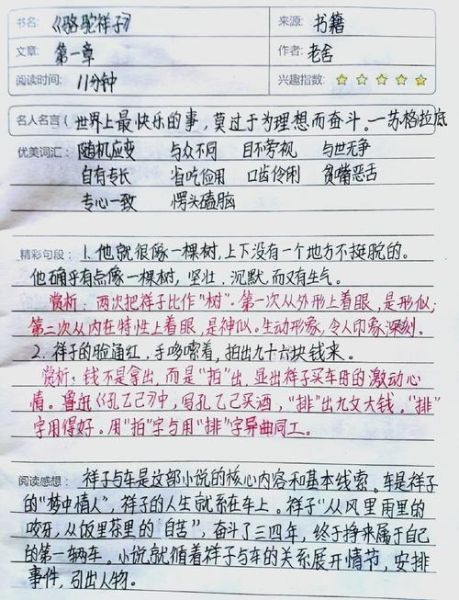 书名:《骆驼祥子》 来源: 书籍
文章: 第一章 作者: 老舍
阅读时间: 11分钟 兴趣指数:
名人名言( 世界上最快乐的事,莫过于为理想而奋斗。—苏格拉底
优美词汇: 随机应变 与众不同 目不旁视 与世无争
自有专长 省吃俭用 口齿伶俐 贫嘴恶舌
专心一致 愣头磕脑
精彩句段: 1.他就很像一棵树,上下没有一个地方不挺脱的。
他确乎有点像一棵树,坚壮、沉默,而又有生气。
赏析:两次把祥子比作“树”。第一次从外形上着眼,是形似;
第二次从内在特性上着眼,是神似。生动形象,令人印象深刻。
2.祥子的脸通红,手哆嗦着,拍出九十六块钱来。
赏析:钱不是拿出,而是“拍”出,显出祥子买车时的激动心
情。鲁迅《孔乙己》中,写孔乙己买酒,“排”出九文大钱,“排”
字用得好。用“拍”字与用“排”字异曲同工。
阅读感想: 祥子与车是这部小说的核心内容和基本线索。车是祥子
的“梦中情人”,祥子的人生就系在车上。祥子“从风里雨里的
咬牙,从饭里茶里的自苦”,奋斗了三四年,终于挣来属于自己
的第一辆车。小说就循着祥子与车的关系展开情节,安排
事件,引出人物。